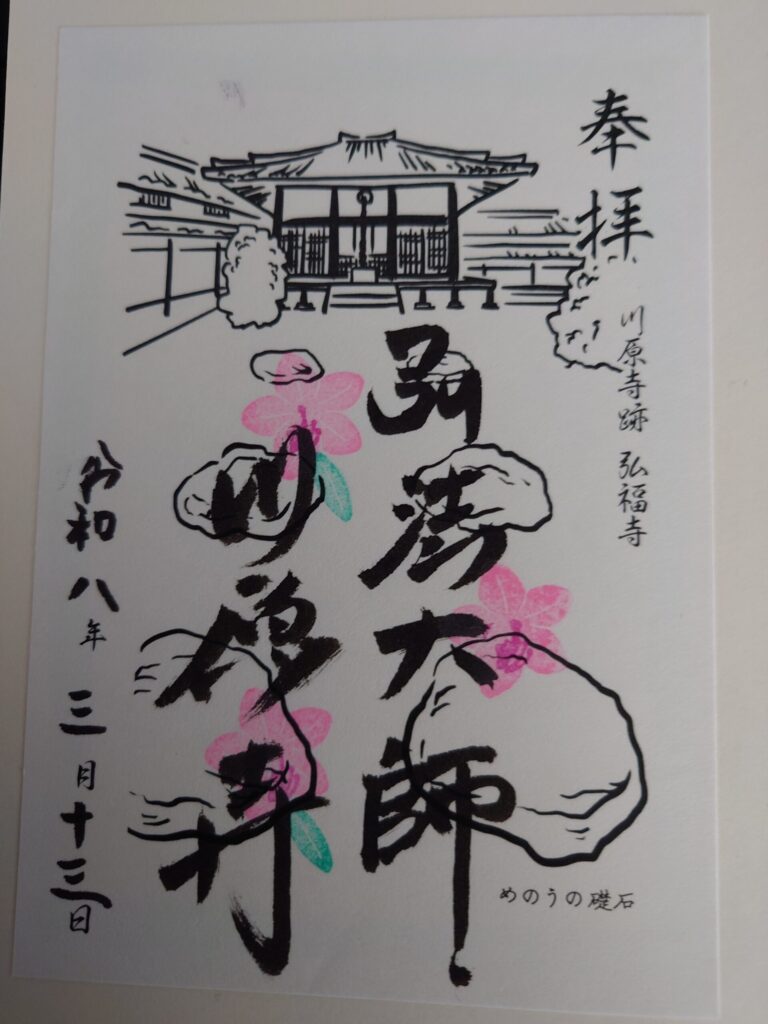 奉拝
川原寺跡 弘福寺
弘法大師
川原寺
令和八年 三月十三日
めのうの礎石